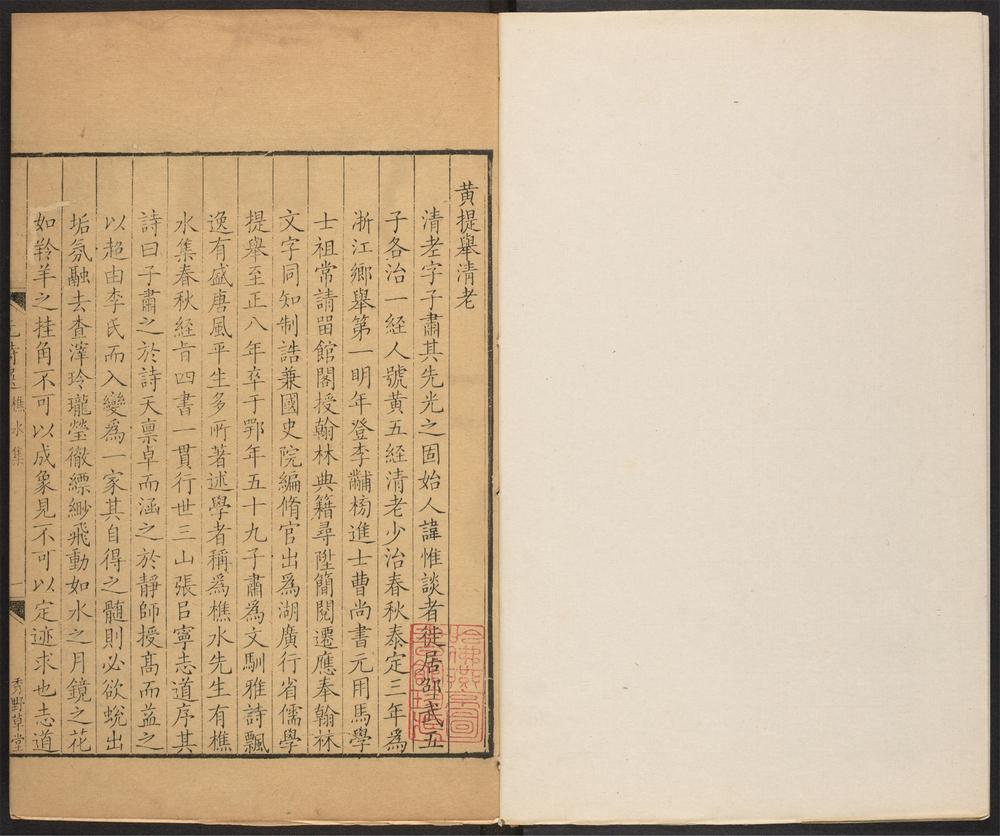 黄提舉清老
清老字子肅其先光之固始人諱惟談者徙居邵武五
子各治一經人號黄五經清老少治春秋泰定三年爲
浙江鄉舉第一明年登李黼榜進士曹尚書元用馬學
士祖常請畱館閣授翰林典籍尋陞簡閱遷應奉翰林
文字同知制誥兼國史院編脩官出爲湖廣行省儒學
提舉至正八年卒于鄂年五十九子肅爲文馴雅詩飄
逸有盛唐風平生多所著述學者稱爲樵水先生有樵
水集春秋經旨四書一貫行世三山張㠯寧志道序其
詩曰子肅之於詩天禀卓而涵之於靜師授髙而益之
以超由李氏而入變爲一家其自得之髓則必欲蛻出
垢氛融去查滓玲瓏瑩徹縹緲飛動如水之月鏡之花
如羚羊之挂角不可以成象見不可以定迹求也志道
元詩選 樵水集 一
秀野草堂